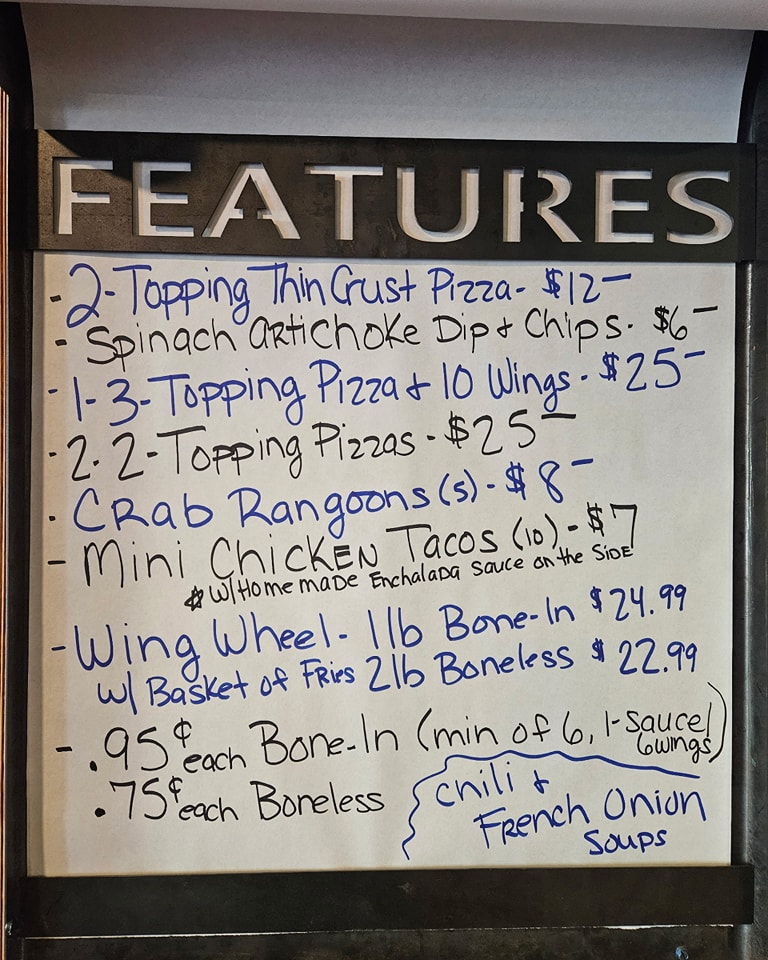 FEATURES
- 2-Topping Thin Crust Pizza- $12-
- Spinach Artichoke Dip & Chips- $6-
- 1-3-Topping Pizza & 10 Wings- $25-
- 2-2-Topping Pizzas- $25-
- Crab Rangoons (5)- $8-
- Mini Chicken Tacos (10)- $7
* w/Homemade Enchalada Sauce on the Side
- Wing Wheel- 1lb Bone-In $24.99
w/ Basket of Fries 2lb Boneless $22.99
- .95¢ each Bone-In (min of 6, 1-Sauce/
6wings)
.75¢ each Boneless
Chili &
French Onion
Soups